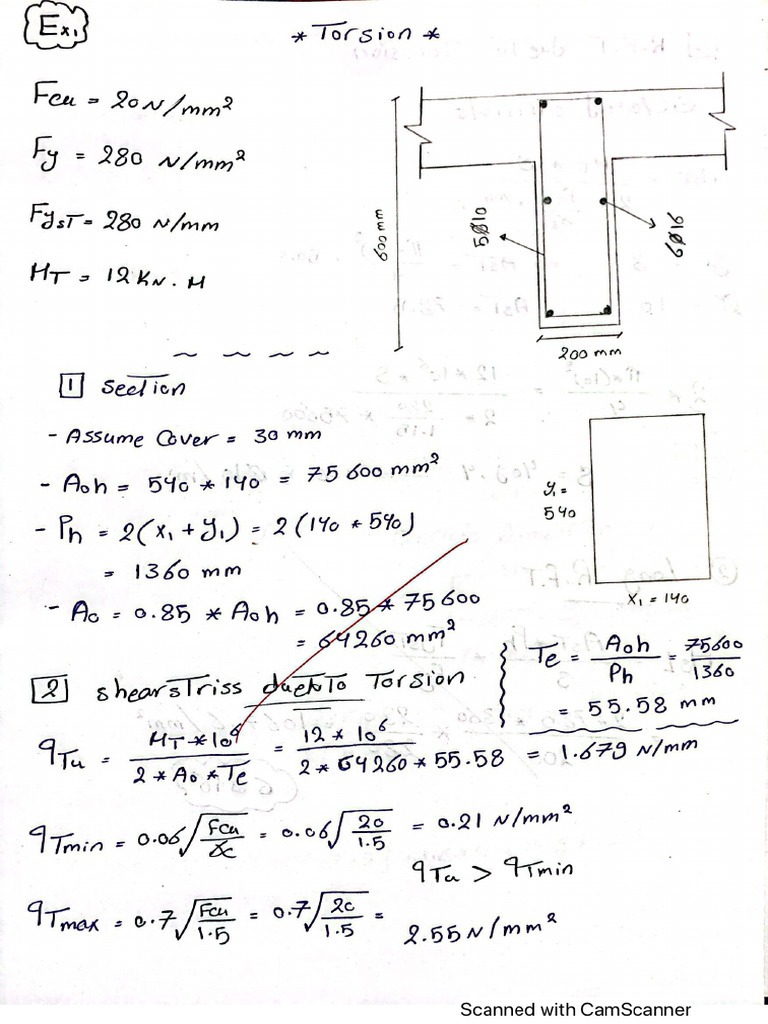 Ex1
* Torsion *
Fcu = 20 N/mm²
Fy = 280 N/mm²
FysT = 280 N/mm
MT = 12 KN.M
600 mm
5Ø10
6Ø16
200 mm
1 Section
- Assume Cover = 30 mm
- Aoh = 540 * 140 = 75600 mm²
- Ph = 2(x1 + y1) = 2(140 * 540)
= 1360 mm
- Ao = 0.85 * Aoh = 0.85 * 75600
= 64260 mm²
y1 =
540
x1 = 140
2 shearsTriss dueto Torsion
Te = Aoh/Ph = 75600/1360
= 55.58 mm
qTu = MT * 10⁶ / 2 * Ao * Te = 12 * 10⁶ / 2 * 64260 * 55.58 = 1.679 N/mm
qTmin = 0.06√Fcu/γc = 0.06√20/1.5 = 0.21 N/mm²
qTu > qTmin
qTmax = 0.7√Fcu/1.5 = 0.7√20/1.5 =
2.55 N/mm²
Scanned with CamScanner